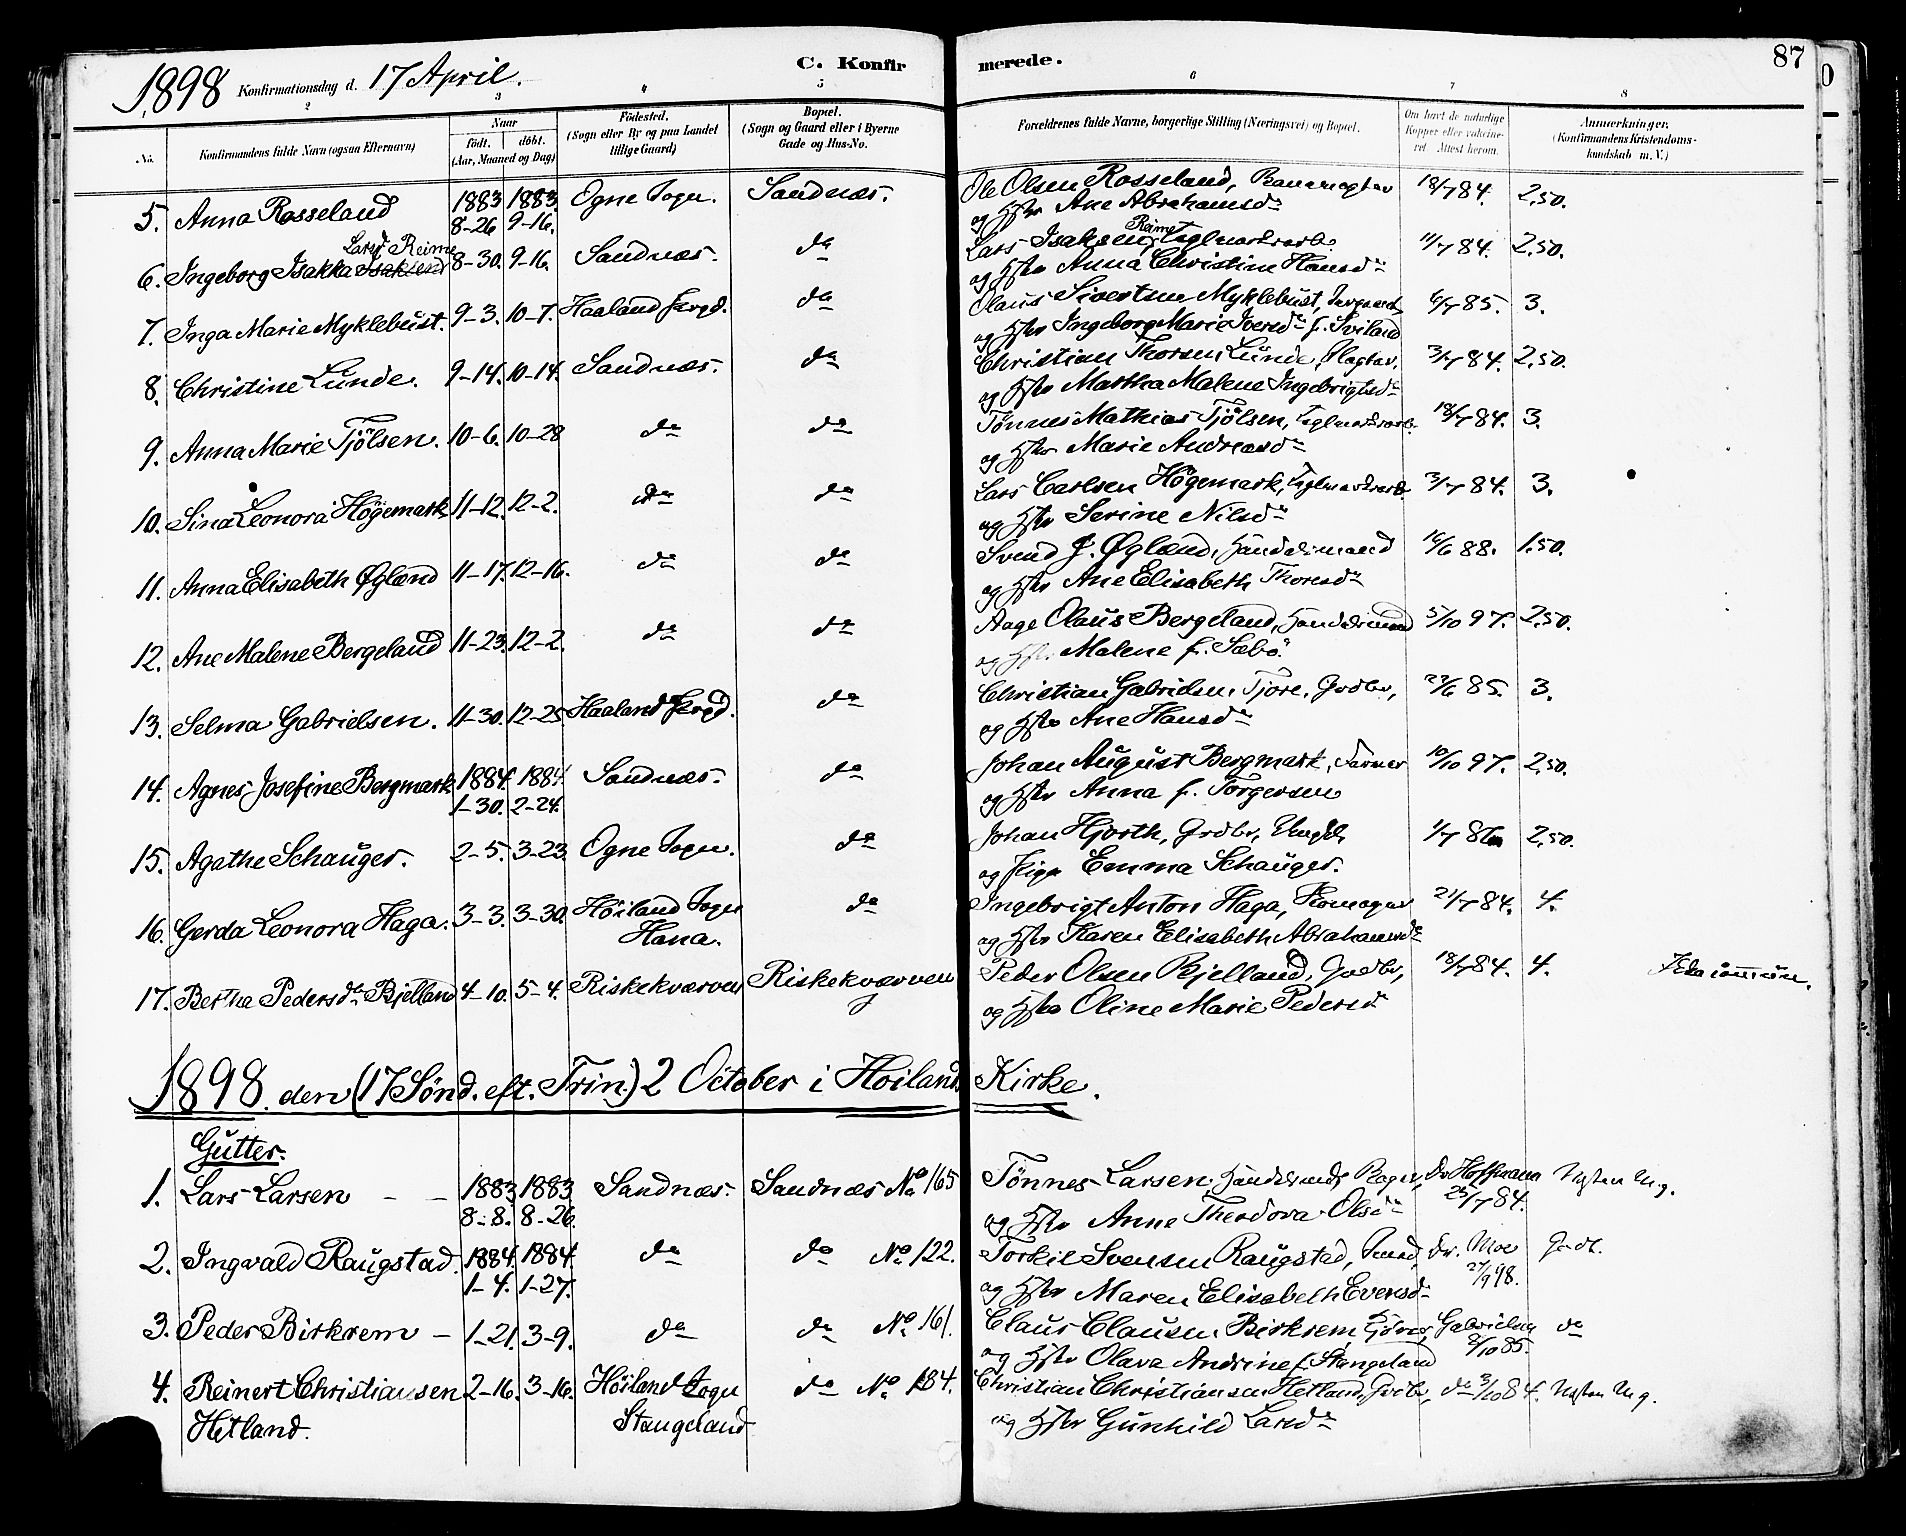 87
C. Konfirmerede.
1898 Konfirmationsdag d. 17 April.
2 3 4 5 6 7 8
No. Konfirmandens fulde Navn (ogsaa Efternavn) Naar født. døbt. (Aar, Maaned og Dag) Fødested. (Sogn eller By og paa Landet tillige Gaard) Bopæl. (Sogn og Gaard eller i Byerne Gade og Hus-No. Forældrenes fulde Navne, borgerlige Stilling (Næringsvei) og Bopæl. Om havt de naturlige Kopper eller vaccineret. Attest herom. Anmærkninger. (Konfirmandens Kristendomskundskab m. V.)
5. Anna Rosseland 1883 8-26 1883 9-16. Ogne Sogn. Sandnæs. Ole Olsen Rosseland, Banevogter 18/7 84. 2,50.
og Hstr Ane Abrahamsdr
Larsd Reime
6. Ingeborg Isakka Isaksen 8-30. 9-16. Sandnæs. do Lars Isaksen Reime Teglverksarb. 11/7 84. 2,50.
og Hstr Anna Christine Hansdr
7. Inga Marie Myklebust. 9-3. 10-7. Haaland Prgd. do Claus Sivertsen Myklebust, 6/7 85. 3.
og Hstr Ingeborg Marie Iversdr f. Sviland
8. Christine Lunde. 9-14. 10-14. Sandnæs. do Christian Thorsen Lunde, Slagter, 3/7 84. 2,50.
og Hstr Martha Malene Ingebrigtsdr
9. Anna Marie Tjølsen. 10-6. 10-28 do do Tønnes Mathias Tjølsen, Teglverksarb. 18/7 84. 3.
og Hstr Marie Andreasdr
10. Sina Leonora Høgemark 11-12. 12-2. do do Lars Carlsen Høgemark, Teglverksarb. 3/7 84. 3.
og Hstr Serine Nilsdr
11. Anna Elisabeth Øglænd 11-17. 12-16. do do Svend J. Øglænd, Handelsmand 16/6 88. 1.50.
og Hstr Ane Elisabeth Thoresdr
12. Ane Malene Bergeland 11-23. 12-2. do do Aage Olaus Bergeland, Handelsmand 5/10 97. 2,50.
og Hstr. Malene f. Sæbø.
13. Selma Gabrielsen. 11-30. 12-25. Haaland Prgd. do Christian Gabrielsen Tjore, Grdbr, 23/6 85. 3.
og Hstr Ane Hansdr
14. Agnes Josefine Bergmark 1884. 1-30. 1884. 2-24. Sandnæs. do Johan August Bergmark, Farver 10/10 97. 2,50.
og Hstr Anna f. Torgersen
15. Agathe Schauger. 2-5. 3-23. Ogne Sogn. do Johan Hjorth, Grdbr, Ungk, 1/7 86 2,50.
og Pige Emma Schauger.
16. Gerda Leonora Haga. 3-3. 3-30. Høiland Sogn Hana. do Ingebrigt Anton Haga, Skomager 21/7 84. 4.
og Hstr Karen Elisabeth Abrahamsdr
17. Bertha Pedersdr Bjelland 4-10. 5-4. Riskekværven Riskekværven Peder Olsen Bjelland, Grdbr, 18/7 84. 4.
og Hstr Oline Marie Pedersdr
1898 den (17 Sønd. eft. Trin.) 2 October i Høiland Kirke.
Gutter.
1. Lars Larsen - - 1883 8-8. 1883. 8-26. Sandnæs. Sandnæs No 165 Tønnes Larsen, Handelsmand, Bager, Dr Hoffmann 25/7 84. Næsten M.g.
og Hstr Anne Theodora Olsdr
2. Ingvald Raugstad. 1884. 1-4. 1884. 1-27. do do No 122. Torkil Svensen Raugstad, Smed, Dr. Moe 27/9 98. Godt.
og Hstr Maren Elisabeth Evensdr
3. Peder Birkrem - 1-21. 3-9. do do No 161. Claus Clausen Birkrem Gabrielsen 8/10 85. do
og Hstr Olava Andrine f. Stangeland
4. Reinert Christiansen 2-16. 3-16. Høiland Sogn do No 184. Christian Christiansen Hetland, Grdbr, do 3/10 84. Næsten M.g.
Hetland. Stangeland og Hstr Gunhild Larsdr